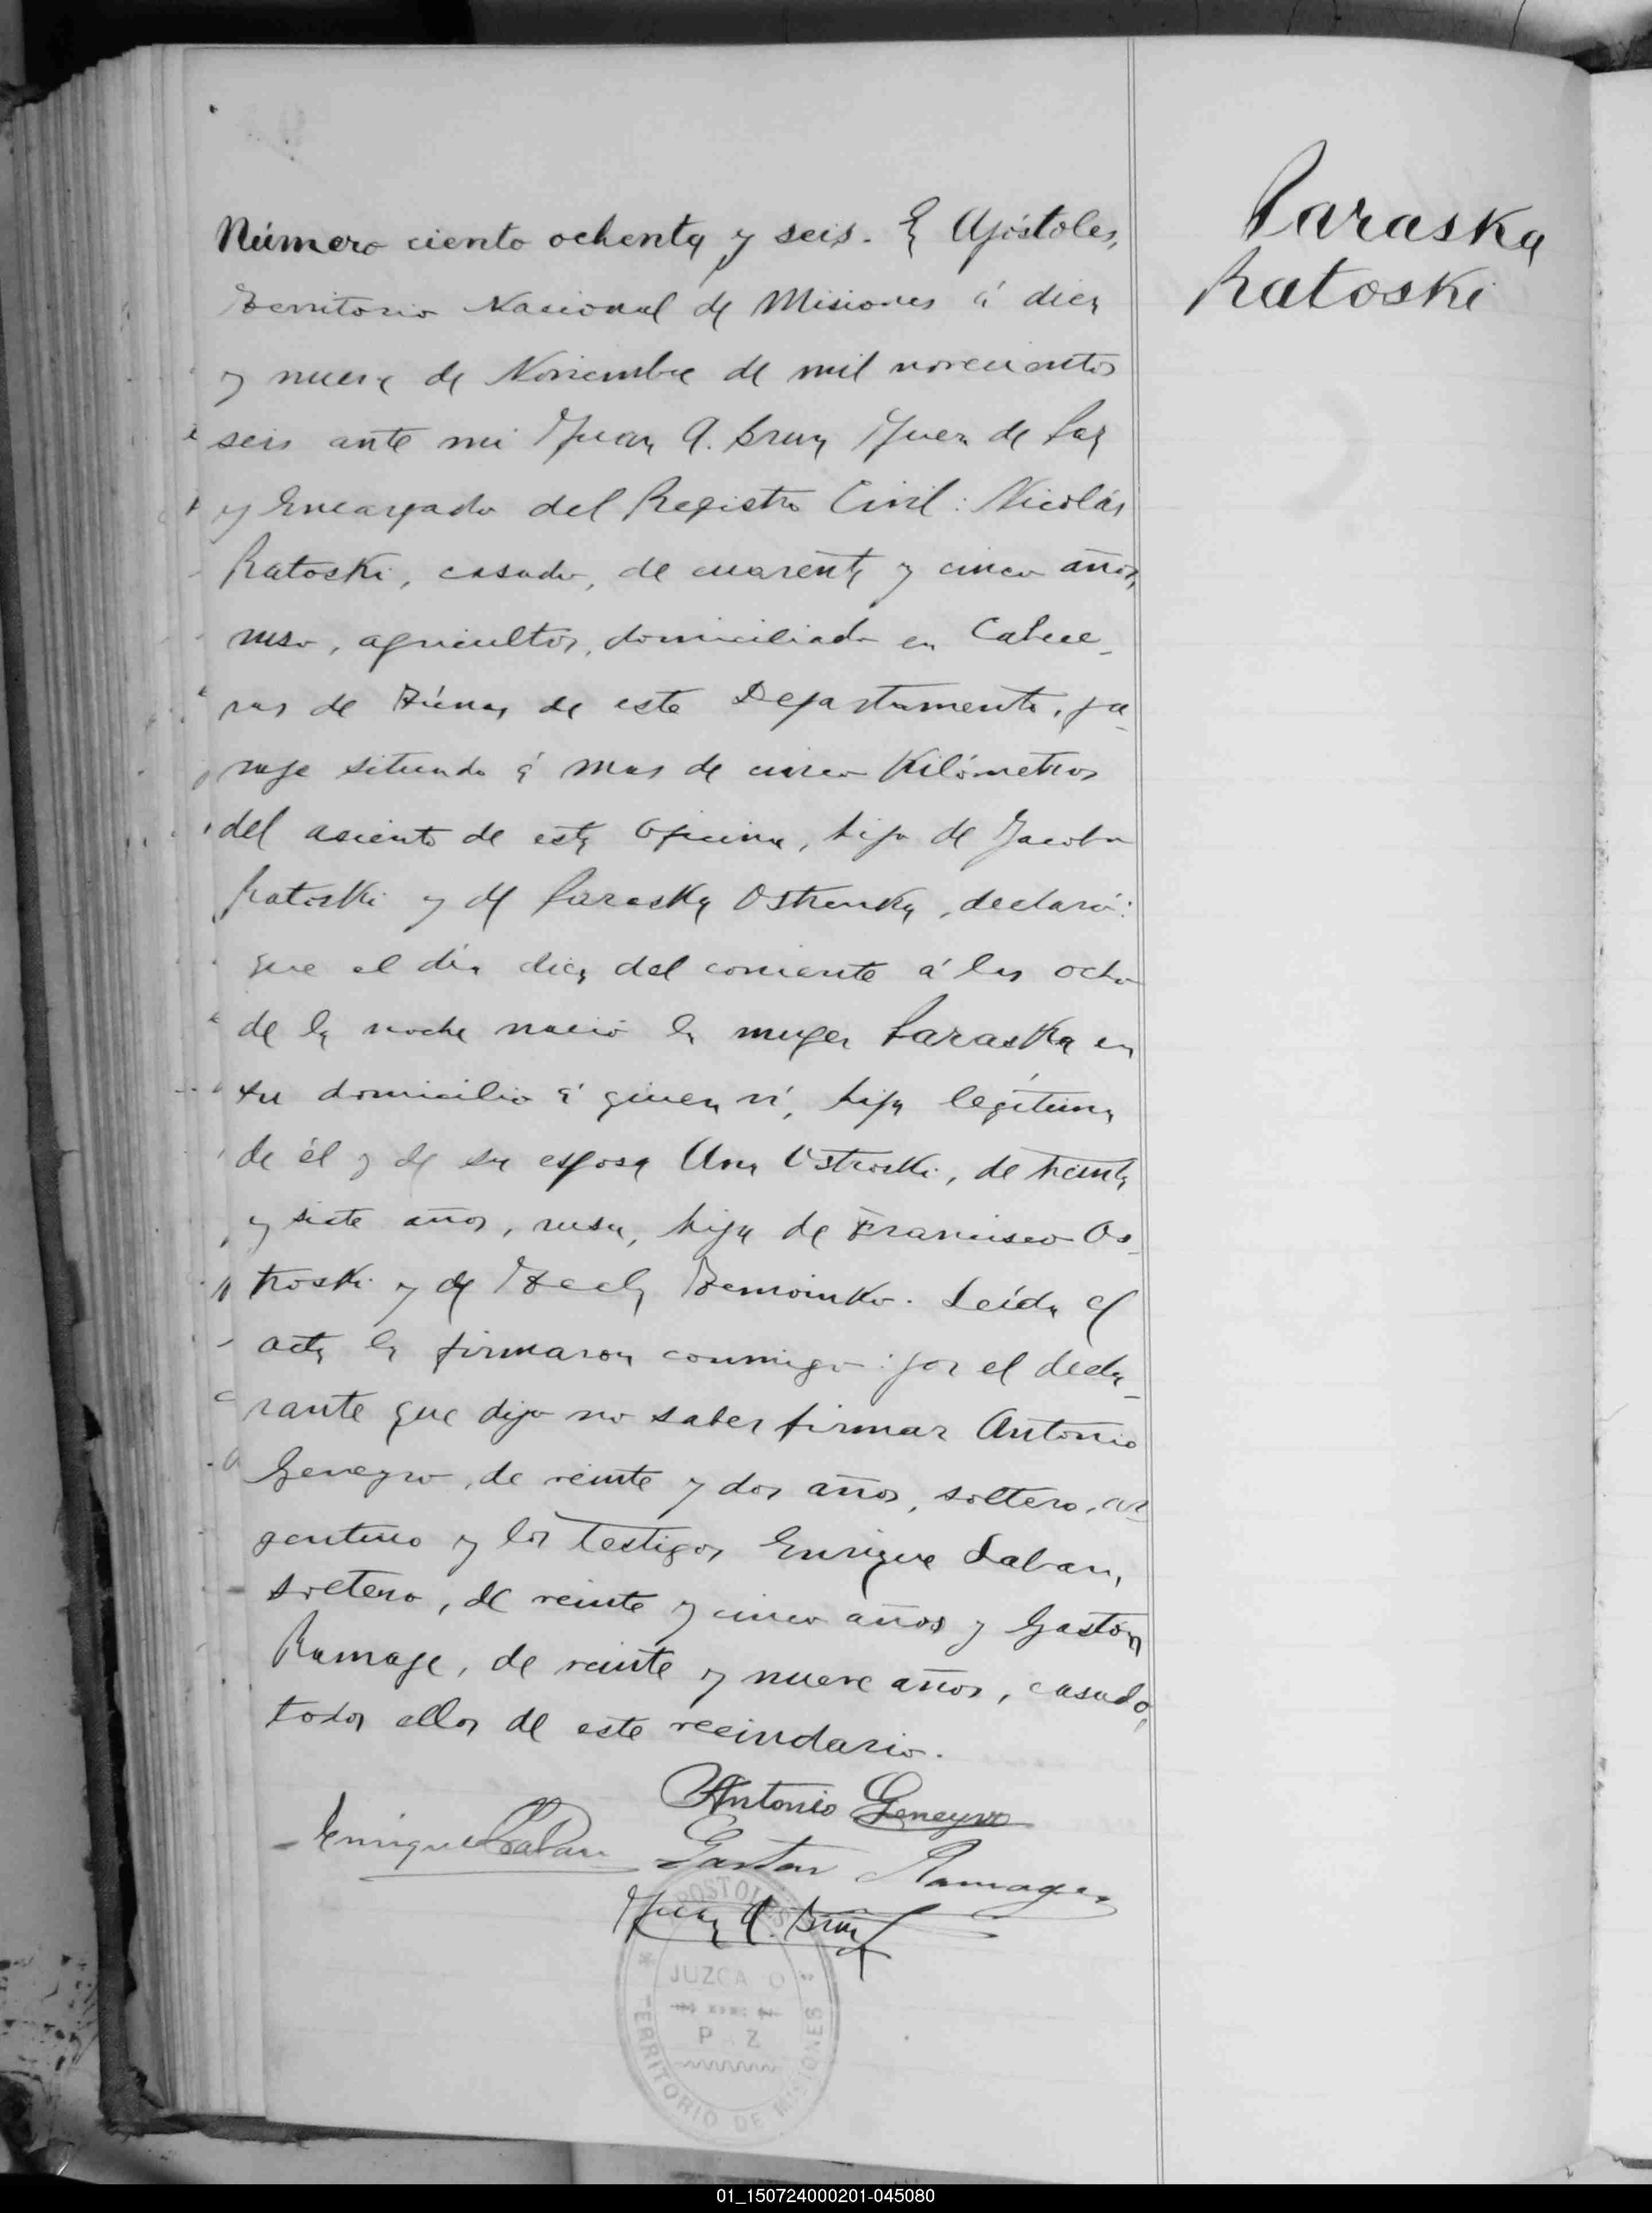 Paraska
Ratoski
Número ciento ochenta y seis. En Apóstoles,
Territorio Nacional de Misiones á diez
y nueve de Noviembre de mil novecientos
seis ante mi Juan A. Brun Juez de Paz
y Encargado del Registro Civil: Nicolás
Ratoski, casado, de cuarenta y cinco años,
ruso, agricultor, domiciliado en Cabece-
ras de de este Departamento, pa-
raje situado á mas de cinco Kilómetros
del asiento de esta Oficina, hijo de Jacobo
Ratoski y de Paraska Ostrenka, declaró:
que el día diez del corriente á las ocho
de la noche nació la muger Paraska en
su domicilio á quien ví, hija legítima
de él y de su esposa Ana Ostroski, de treinta
y siete años, rusa, hija de Francisco Os-
troski y de. Leída el
acta la firmaron conmigo: por el decla-
rante que dijo no saber firmar Antonio
Geneyro, de veinte y dos años, soltero, ar-
gentino y los testigos Enrique Laban,
soltero, de veinte y cinco años y Gastón
Ramage, de veinte y nueve años, casado,
todos ellos de este vecindario.
Antonio Geneyro
Enrique Laban Gaston Ramage
Juan A. Brun
APOSTOLES
JUZGADO
P Z
TERRITORIO DE MISIONES
01_150724000201-045080